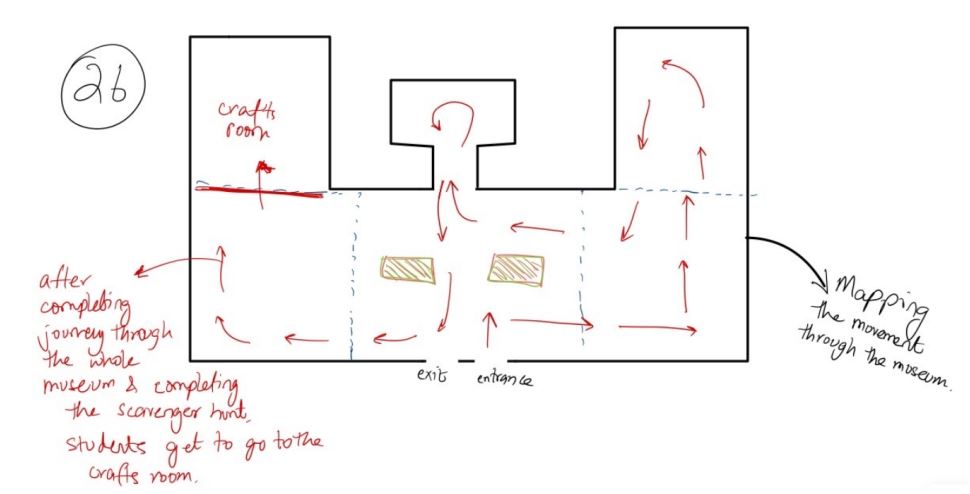 26
crafts
room
exit
entrance
after
completing
journey through
the whole
museum & completing
the scavenger hunt,
students get to go to the
crafts room.
Mapping
the movement
through the museum.